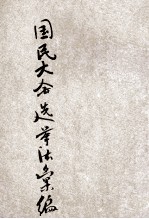 国民大会选举法汇编